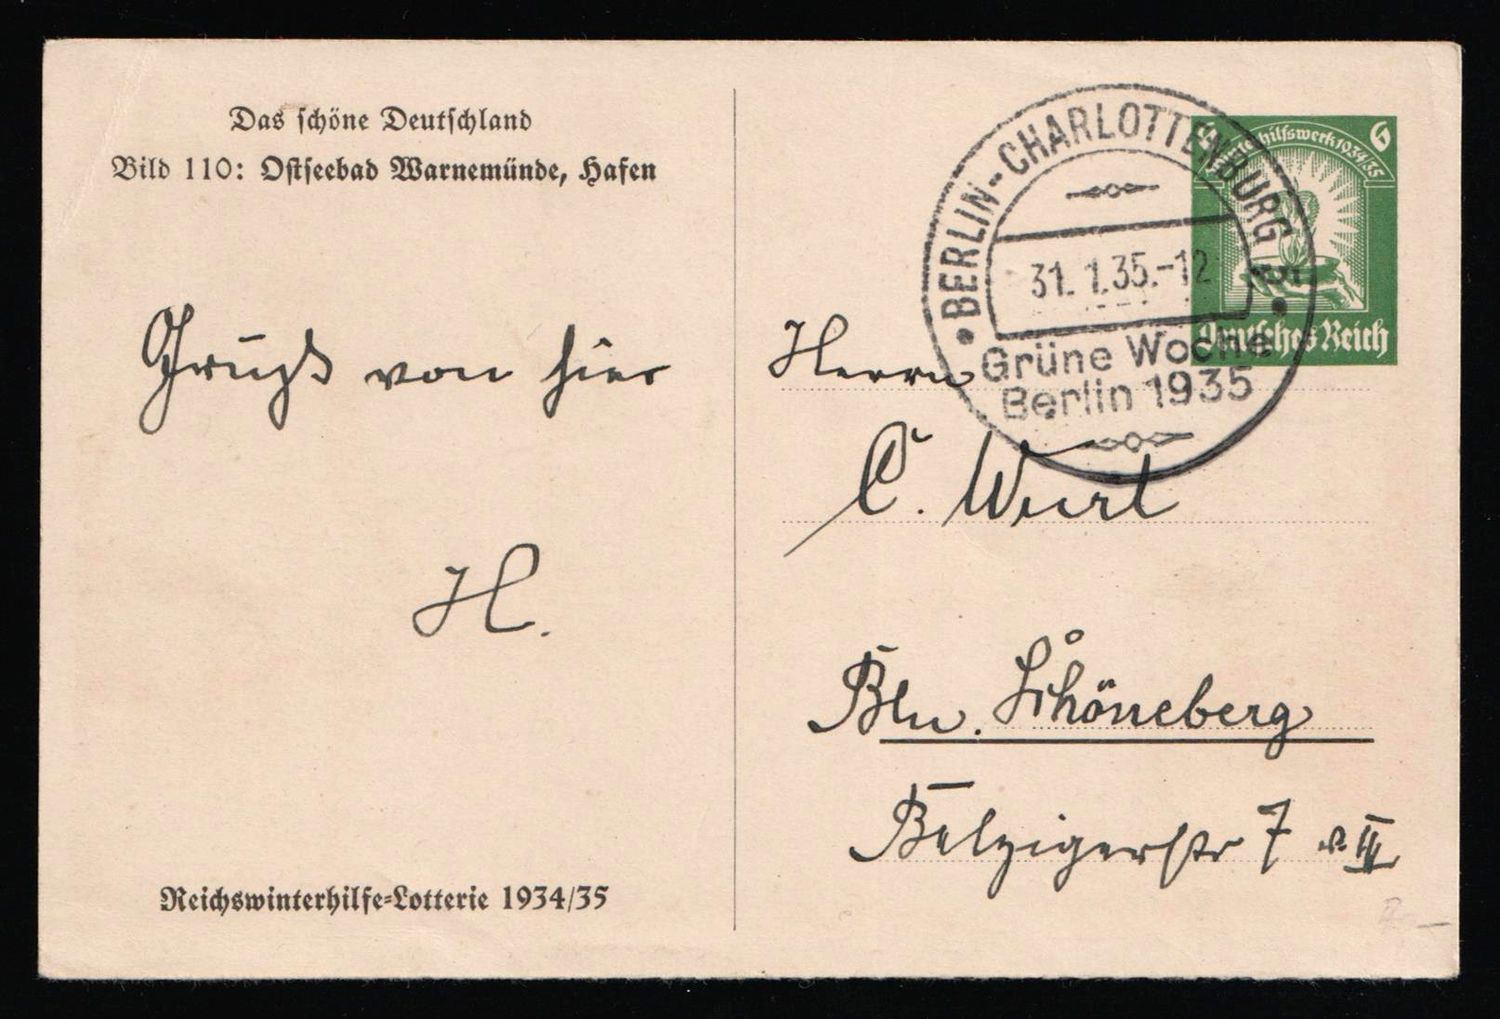 Das schöne Deutschland
Bild 110: Ostseebad Warnemünde, Hafen
Gruß von hier
H.
Reichswinterhilfe-Lotterie 1934/35
BERLIN-CHARLOTTENBURG
31.1.35.-12
Grüne Woche
Berlin 1935
Winterhilfswerk 1934/35
6
Deutsches Reich
Herrn
C.
Bln. Schöneberg
Belzigerstr 7